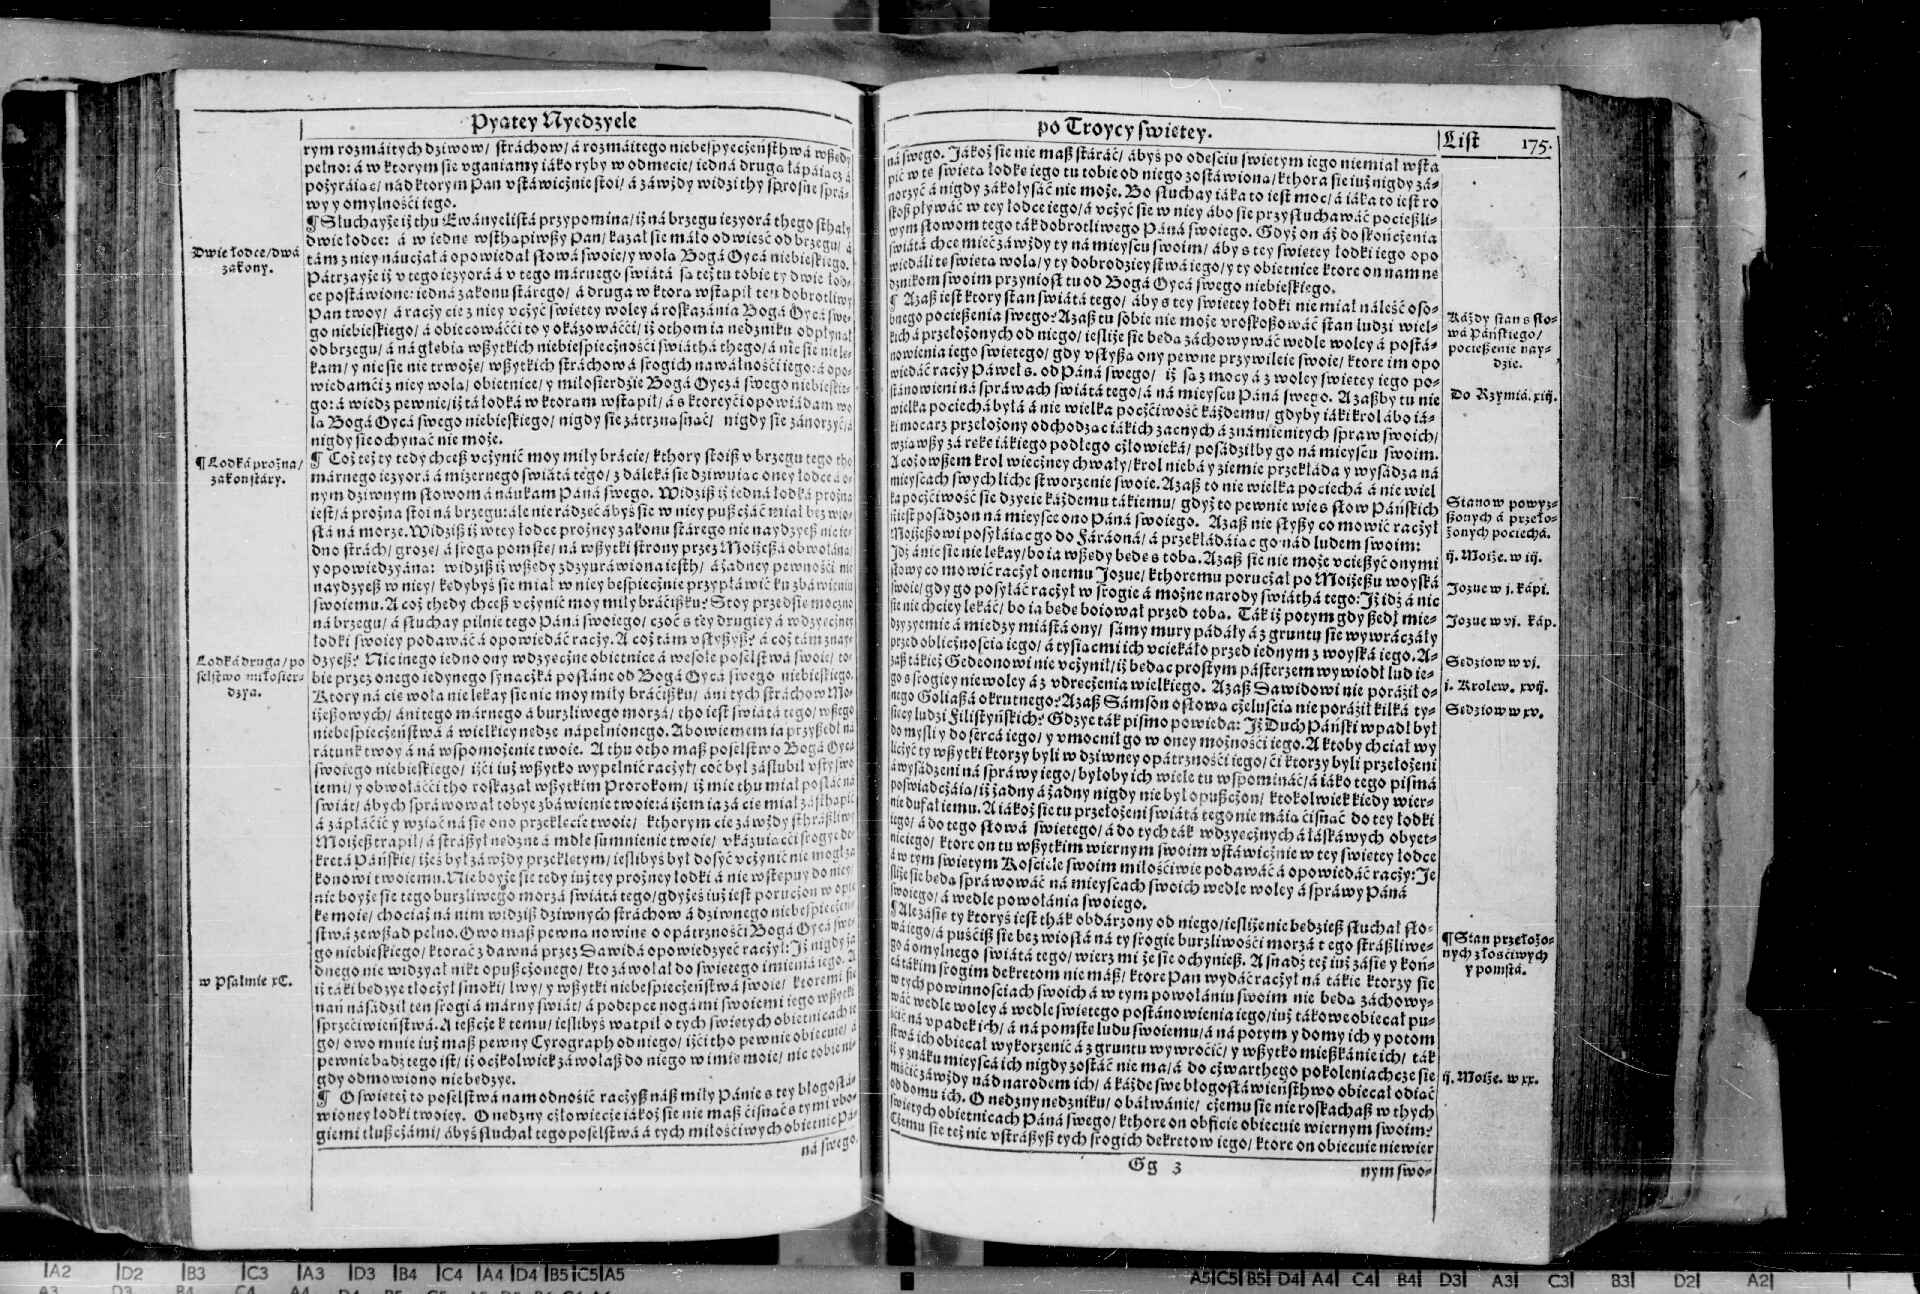 Pyątey Nyedzyele
rym rozmáitych dziwow/ stráchow/ á rozmáitego niebespyeczeństhwá wszędy
pełno: á w ktorym sie vganiamy iáko ryby w odmęcie/ iedná drugą łápáiąc á
pożyráiąc/ nád ktorym Pan vstáwicznie stoi/ á záwżdy widzi thy sprosne spra-
wy y omylności iego.
¶ Słuchayże iż thu Ewányelistá przypomina/ iż ná brzegu ieżyorá thego sthały
dwie łodce: á w iednę wsthąpiwszy Pan/ kazał sie máło odwieść od brzegu/ á
tám z niey náuczał á opowiedał słowá swoie/ y wolą Bogá Oycá niebieskiego.
Pátrzayże iż v tego ieżyorá á v tego márnego swiátá są też tu tobie ty dwie łod-
ce postáwione: iedná zakonu stárego/ á druga w ktorą wstąpił ten dobrotliwy
Pan twoy/ á raczy cie z niey vczyć swiętey woley á roskazánia Bogá Oycá swe-
go niebieskiego/ á obiecowáć ći to y okázowáć ći/ iż othom ia nędzniku odpłynął
od brzegu/ á ná głębią wszytkich niebiespiecżności swiáthá thego/ á nic sie nie lę-
kam/ y nic sie nie trwożę/ wszytkich stráchow á srogich náwáłności iego: á opo-
wiedam ći z niey wolą/ obietnice/ y miłosierdzie Bogá Oycá swego niebieskie-
go: á wiedz pewnie/ iż tá łodká w ktoram wstąpił/ á s ktorey ći opowiádam wo
lą Bogá Oycá swego niebieskiego/ nigdy sie zátrząsnąć/ nigdy sie zánorzyć/ á
nigdy sie ochynąć nie może.
¶ Coż też ty tedy chcesz vcżynić moy miły brácie/ kthory stoisz v brzegu tego tho
márnego ieżyorá á mizernego swiátá tego/ z dáleká sie dziwuiąc oney łodce á o-
nym dziwnym słowom á náukam Páná swego. Widzisz iż iedná łodká prożna
iest/ á prożna stoi ná brzegu: ále nie rádzęć ábyś sie w niey puszcżáć miał bez wio-
słá ná morze. Widzisz iż w tey łodce prożney zakonu stárego nie naydzyesz nic ie-
dno strách/ grozę/ á srogą pomstę/ ná wszytki strony przez Moiżeszá obwołáną/
y opowiedzyáną: widzisz iż wszędy zdzyuráwioná iesth/ á żadney pewności nie
naydzyesz w niey/ kedybyś sie miał w niey bespiecżnie przypłáwić ku zbáwieniu
swoiemu. A coż thedy chcesz vcżynić moy miły bráciszku? Stoy przedsię mocno
ná brzegu/ á słuchay pilnie tego Páná swoiego/ czoć s tey drugiey á wdzyęcżney
łodki swoiey podawáć á opowiedáć raczy. A coż tám vsłyszysz? á coż tám znay-
dzyesz? Nic inego iedno ony wdzyęcżne obietnice á wesołe poselstwá swoie/ to-
bie przez onego iedynego synacżká posłáne od Bogá Oycá swego niebieskiego.
Ktory ná cie woła nie lękay sie nic moy miły bráciszku/ áni tych stráchow Mo-
iżeszowych/ áni tego márnego á burzliwego morzá/ tho iest swiátá tego/ wszego
niebespieczeństwá á wielkiey nędze nápełnionego. Abowiemem ia przyszedł ná
rátunk twoy á ná wspomożenie twoie. A thu otho masz poselstwo Bogá Oycá
swoiego niebieskiego/ iż ći iuż wszytko wypełnić raczył/ coć był záslubił vsty swo
iemi/ y obwołáć ći tho roskazał wszytkim Prorokom/ iż mie thu miał posłáć ná
swiát/ ábych spráwował tobye zbáwienie twoie: á iżem ia zá cie miał zásthąpić
á zápłácić y wziąć ná się ono przeklęcie twoie/ kthorym cie záwżdy sthrászliwy
Moiżesz trapił/ á strászył nędzne á mdłe sumnienie twoie/ vkázuiąc ći srogye de-
kretá Páńskie/ iżeś był záwżdy przeklętym/ ieslibyś był dosyć vcżynić nie mogł za
konowi twoiemu. Nie boyże sie tedy iuż tey prożney łodki á nie wstępuy do niey/
nie boyże sie tego burzliwego morzá swiátá tego/ gdyżeś iuż iest porucżon w opie
kę moię/ chociaż ná nim widzisz dziwnych stráchow á dziwnego niebespiecżeń-
stwá zewsząd pełno. Owo masz pewną nowinę o opátrzności Bogá Oycá swe-
go niebieskiego/ ktorać z dawná przez Dawidá opowiedzyeć raczył: Iż nigdy żá
dnego nie widzyał nikt opuszcżonego/ kto záwołał do swiętego imieniá iego. A
iż táki będzye tłocżył smoki/ lwy/ y wszytki niebespiecżeństwá swoie/ ktoremi sie
nań násádził ten srogi á márny swiát/ á podepce nogámi swoiemi iego wszytki
sprzeciwieństwá. A ieszcże k temu/ ieslibyś wątpił o tych swiętych obietnicách ie
go/ owo mnie iuż masz pewny Cyrograph od niego/ iż ći tho pewnie obiecuie/ á
pewnie bądź tego ist/ iż ocżkolwiek záwołasz do niego w imię moie/ nic tobie ni-
gdy odmowiono nie będzye.
¶ O swięteż to poselstwá nam odnosić raczysz nász miły Pánie s tey błogosłá-
wioney łodki twoiey. O nędzny cżłowiecże iákoż sie nie masz cisnąć s tymi vbo-
giemi tłuszcżámi/ ábyś słuchał tego poselstwá á tych miłościwych obietnic Pá-
ná swego.
Dwie łodce/ dwá
zakony.
¶ Łodká prożna/
zakon stáry.
Łodká druga/ po
selstwo miłosier-
dzya.
w Psalmie xC.
po Troycy swiętey.
List 175.
ná swego. Iákoż sie nie masz stáráć/ ábyś po odesciu swiętym iego niemiał wstą
pić w tę swiętą łodkę iego tu tobie od niego zostáwioną/ kthora sie iuż nigdy zá-
norzyć á nigdy zákołysáć nie może. Bo słuchay iáka to iest moc/ á iáka to iest ro
skosz pływáć w tey łodce iego/ á vcżyć sie w niey ábo sie przysłuchawáć pocieszli-
wym słowom tego ták dobrotliwego Páná swoiego. Gdyż on áż do skońcżenia
swiátá chce mieć záwżdy ty ná mieyscu swoim/ áby s tey swiętey łodki iego opo
wiedáli tę swiętą wolą/ y ty dobrodzieystwá iego/ y ty obietnice ktore on nam nę
dznikom swoim przyniosł tu od Bogá Oycá swego niebieskiego.
¶ Azasz iest ktory stan swiátá tego/ áby s tey swiętey łodki nie miał náleść oso-
bnego pocieszenia swego? Azasz tu sobie nie może vroskoszowáć stan ludzi wiel-
kich á przełożonych od niego/ iesliże sie będą záchowywáć wedle woley á postá-
nowienia iego swiętego/ gdy vsłyszą ony pewne przywileie swoie/ ktore im opo
wiedáć raczy Páweł s. od Páná swego/ iż są z mocy á z woley swiętey iego po-
stánowieni ná spráwach swiátá tego/ á ná mieyscu Páná swego. A zaszby tu nie
wielka pociechá byłá á nie wielka pocżciwość káżdemu/ gdyby iáki krol ábo iá-
ki mocarz przełożony odchodząc iákich zacnych á známienitych spraw swoich/
wziąwszy zá rękę iákiego podłego cżłowieká/ posádziłby go ná mieyscu swoim.
A coż owszem krol wiecżney chwały/ krol niebá y ziemie przekłáda y wysadza ná
mieyscach swych liche stworzenie swoie. Azasz to nie wielka pociechá á nie wiel
ka pocżciwość sie dzyeie káżdemu tákiemu/ gdyż to pewnie wie s słow Páńskich
iż iest posádzon ná mieysce ono Páná swoiego. Azasz nie słyszy co mowić raczył
Moiżeszowi posyłáiąc go do Fáráoná/ á przekłádáiąc go nád ludem swoim:
Idź á nic sie nie lękay/ bo ia wszędy będę s tobą. Azasz sie nie może vcieszyć onymi
słowy co mowić raczył onemu Iozue/ kthoremu porucżał po Moiżeszu woyská
swoie/ gdy go posyłáć raczył w srogie á możne narody swiáthá tego: Iż idź á nic
sie nie chciey lękáć/ bo ia będę boiował przed tobą. Ták iż potym gdy szedł mie-
dzy zyemie á miedzy miástá ony/ sámy mury pádáły á z gruntu sie wywracáły
przed oblicżnoscią iego/ á tysiącmi ich vciekáło przed iednym z woyská iego. A-
zasz tákież Gedeonowi nie vcżynił/ iż będąc prostym pásterzem wywiodł lud ie-
go s srogiey niewoley á z vdręcżenia wielkiego. Azasz Dawidowi nie poráził o-
nego Goliaszá okrutnego? Azasz Sámson osłową cżeluścią nie poráził kilká ty-
sięcy ludzi Filistyńskich? Gdzye ták pismo powieda: Iż Duch Páński wpadł był
do mysli y do sercá iego/ y vmocnił go w oney możności iego. A ktoby chciał wy
licżyć ty wszytki ktorzy byli w dziwney opátrzności iego/ ći ktorzy byli przełożeni
á wysádzeni ná spráwy iego/ byłoby ich wiele tu wspomináć/ á iáko tego pismá
poswiadcżáią/ iż żadny á żadny nigdy nie był opuszcżon/ ktokolwiek kiedy wier-
nie dufał iemu. A iákoż sie tu przełożeni swiátá tego nie máią cisnąć do tey łodki
iego/ á do tego słowá swiętego/ á do tych ták wdzyęcżnych á łáskáwych obyet-
nic iego/ ktore on tu wszytkim wiernym swoim vstáwicżnie w tey swiętey łodce
á w tym swiętym Kosciele swoim miłościwie podawáć á opowiedáć raczy: Ie
sliże sie będą spráwowáć ná mieyscach swoich wedle woley á spráwy Páná
swoiego/ á wedle powołánia swoiego.
¶ Ale zásię ty ktoryś iest thák obdárzony od niego/ iesliże nie będziesz słuchał sło-
wá iego/ á puścisz sie bez wiosłá ná ty srogie burzliwości morzá tego strászliwe-
go á omylnego swiátá tego/ wierz mi że sie ochyniesz. A snadź też iuż zásię y koń-
cá tákim srogim dekretom nie masz/ ktore Pan wydáć raczył ná tákie ktorzy sie
w tych powinnosciach swoich á w tym powołániu swoim nie będą záchowy-
wáć wedle woley á wedle swiętego postánowienia iego/ iuż tákowe obiecał pu-
ścić ná vpadek ich/ á ná pomstę ludu swoiemu/ á ná potym y domy ich y potom
stwá ich obiecał wykorzenić á z gruntu wywrocić/ y wszytko mieszkánie ich/ ták
iż y znáku mieyscá ich nigdy zostáć nie ma/ á do cżwarthego pokolenia chce sie
mścić záwżdy nád narodem ich/ á káżde swe błogosłáwieństhwo obiecał odiąć
od domu ich. O nędzny nędzniku/ o báłwánie/ cżemu sie nie roskochasz w thych
swiętych obietnicach Páná swego/ kthore on obficie obiecuie wiernym swoim?
Cżemu sie też nie vstrászysz tych srogich dekretow iego/ ktore on obiecuie niewier
Gg 3
nym swo-
Káżdy stan s sło-
wá Páńskiego/
pocieszenie nay-
dzie.
Do Rzymiá. xiij.
Stanow powyż-
szonych á przeło-
żonych pociechá.
ij. Moiże. w iij.
Iozue w j. kápi.
Iozue w vj. káp.
Sędziow w vj.
j. Krolew. xvij.
Sędziow w xv.
¶ Stan przełożo-
nych złościwych
y pomstá.
ij. Moiże. w xx.